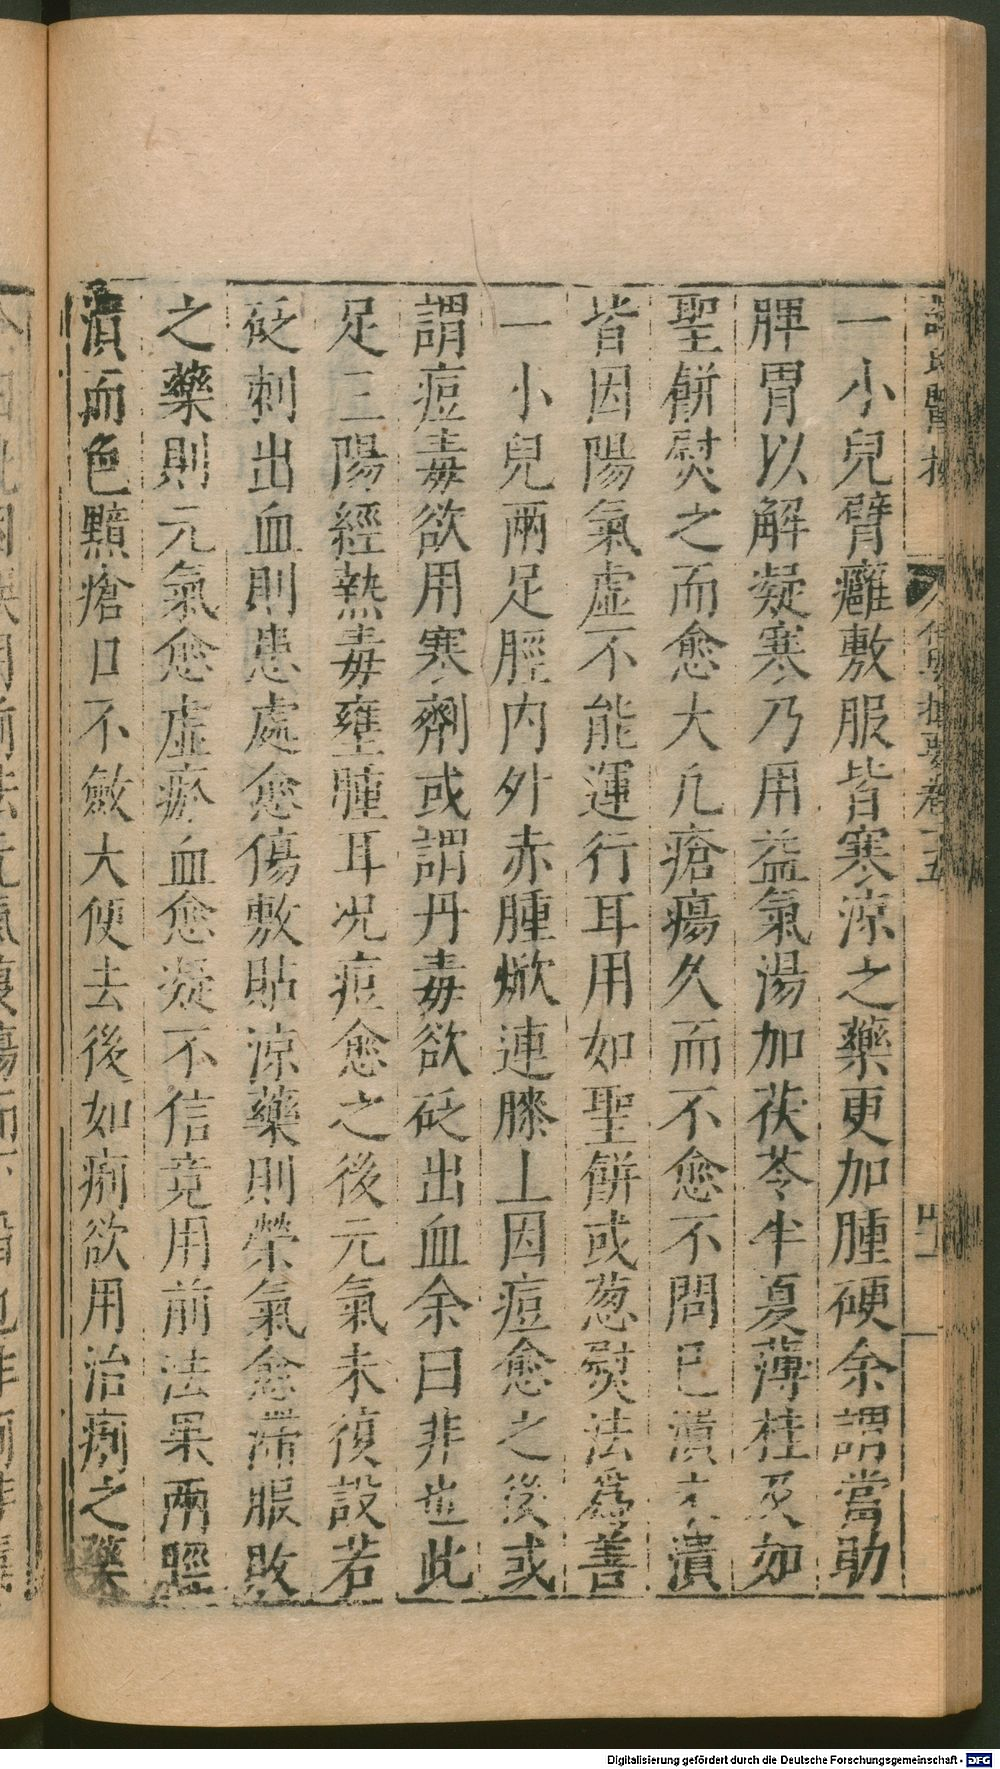 一小兒臂癰敷服皆寒涼之藥更加腫硬余謂當助
脾胃以解凝寒乃用益氣湯加茯苓半夏薄桂及如
聖餅熨之而愈大凡瘡瘍久而不愈不問已潰未潰
皆因陽氣虛不能運行耳用如聖餅或葱熨法爲善
一小兒兩足脛内外赤腫焮連膝上因痘愈之後或
謂痘毒欲用寒劑或謂丹毒欲砭出血余曰非也此
足三陽經熱毒壅腫耳况痘愈之後元氣未復設若
砭刺出血則患處愈傷敷貼涼藥則榮氣愈滯服敗
之藥則元氣愈虛瘀血愈凝不信竟用前法果兩脛
潰而色黯瘡口不斂大便去後如痢欲用治痢之藥
Digitalisierung gefördert durch die Deutsche Forschungsgemeinschaft - DFG